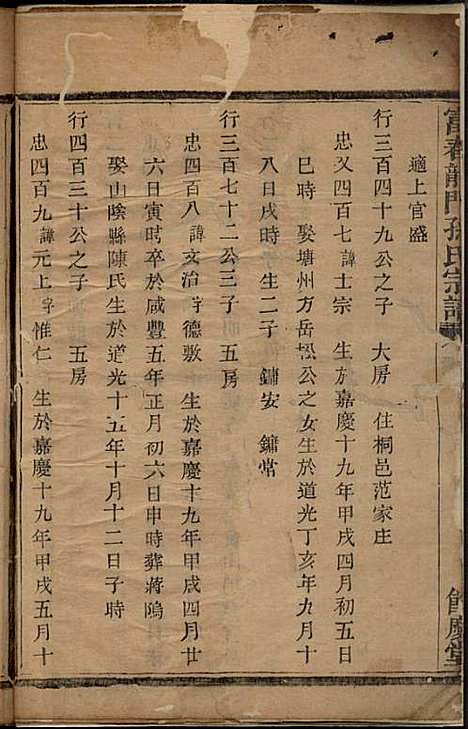 富春龍門孫氏宗譜 餘慶堂
適上官盛
行三百四十九公之子 大房 住桐邑范家庄
忠又四百七諱士宗 生於嘉慶十九年甲戌四月初五日
巳時 娶塘州方岳松公之女生於道光丁亥年九月十
八日戌時 生二子 鏞安 鏞常
行三百七十二公三子 五房
忠四百八諱文治字德敷 生於嘉慶十九年甲戌四月廿
六日寅時卒於咸豐五年正月初六日申時葬蔣鴎
娶山陰縣陳氏生於道光十五年十月十二日子時
行四百三十公之子 五房
忠四百九諱元上字惟仁 生於嘉慶十九年甲戌五月十